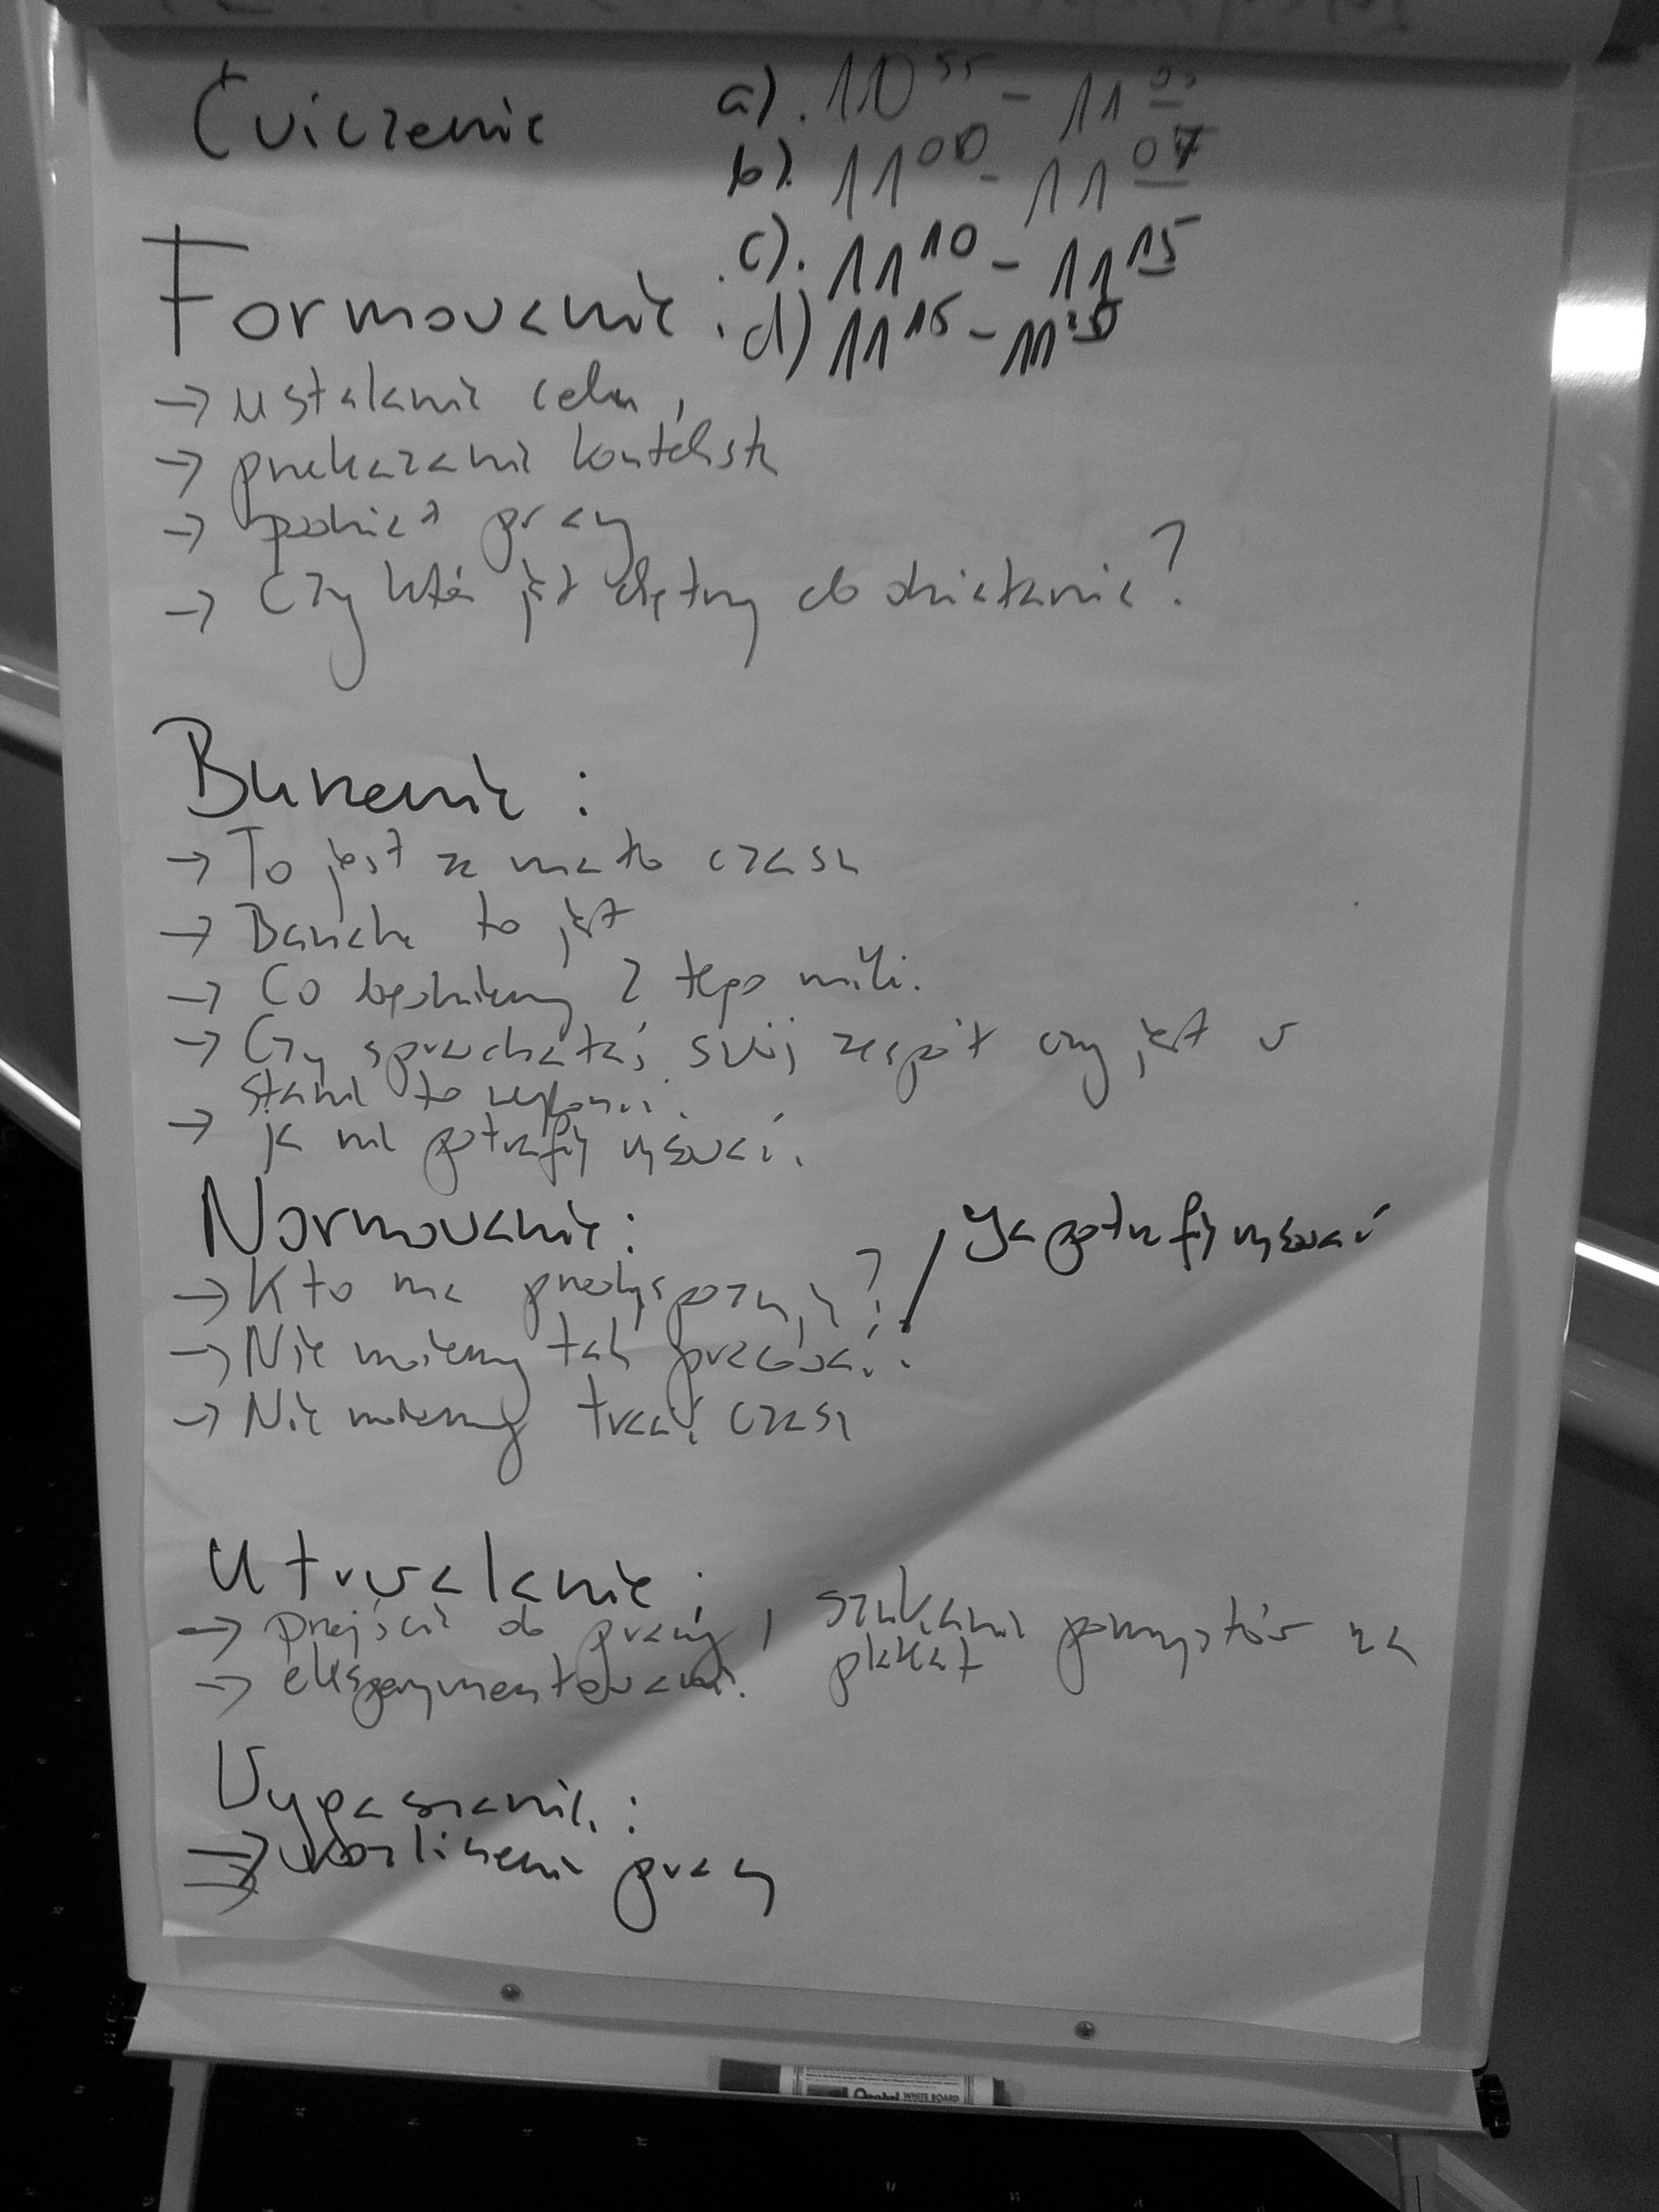 Ćwiczenie
a). 10 55 - 11
b). 11 00 - 11 07
c). 11 10 - 11 15
d) 11 15 - 11
Formowanie:
→ ustalanie celu,
→ przekazanie kontekstu
→ podział pracy
→ Czy ktoś jest chętny do działania?
Burzenie:
→ To jest za mało czasu
→ to jest
→ Co będziemy z tego mieli.
→ Czy sprawdzałaś swój zespół czy jest w
stanie to
→ ja nie potrafię rysować.
Normowanie:
Ja potrafię rysować
→ Kto ma predyspozycje?
→ Nie możemy tak pracować.
→ Nie możemy tracić czasu
Utrwalanie:
→ przejście do pracy, szukanie pomysłów na
plakat
→ eksperymentowanie.
Wygaszanie:
→ rozliczenie pracy
WHITE BOARD